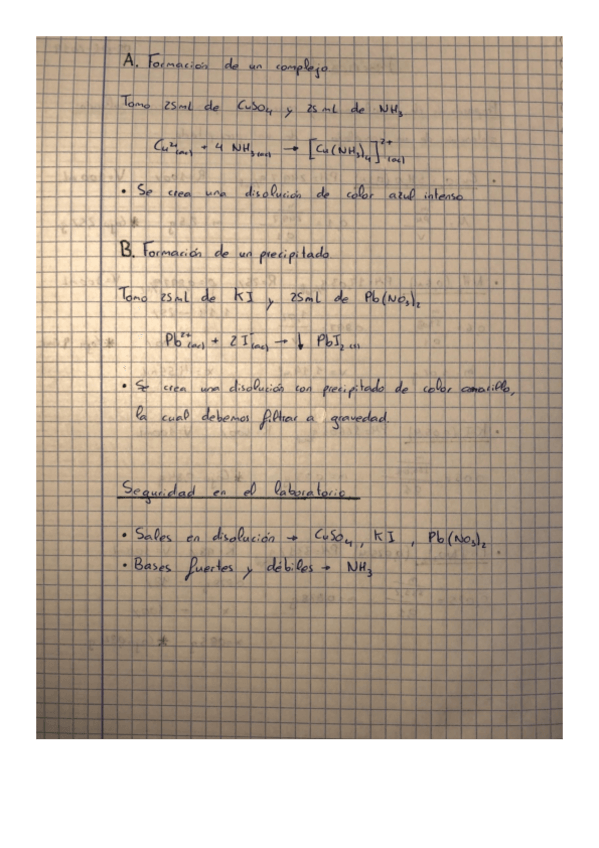 A. Formación de un complejo
Tomo 25mL de CuSO₄ y 25 mL de NH₃
Cu²⁺(ac) + 4 NH₃(ac) → [Cu(NH₃)₄]²⁺(ac)
• Se crea una disolución de color azul intenso
B. Formación de un precipitado
Tomo 25mL de KI y 25mL de Pb(NO₃)₂
Pb²⁺(ac) + 2 I⁻(ac) → ↓ PbI₂(s)
• Se crea una disolución con precipitado de color amarillo,
la cual debemos filtrar a gravedad.
Seguridad en el laboratorio
• Sales en disolución → CuSO₄, KI, Pb(NO₃)₂
• Bases fuertes y débiles → NH₃